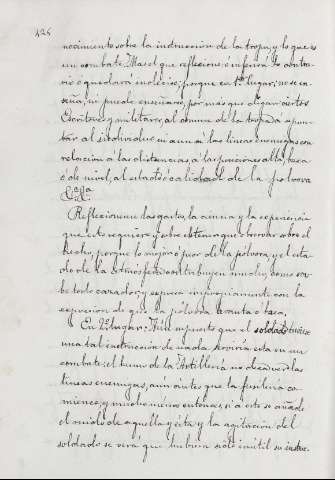 426
nocimiento sobre la instruccion de la tropa, y lo que es
un combate. Mas el que reflecsione ó infiera lo contra-
rio ó quedará indeciso; porque en 1er lugar; no se en-
seña, ni puede enseñarse, por más que digan ciertos
Escritores militares, al comun de la tropa á apun-
tar al individuo ni aun á las lineas enemigas con
relacion á las distancias á las posiciones alta, baca
ó de nivel, al estado ó calidad de la polvora
Reflecsionense los gastos, la calma y la esperiencia
que esto requiere y sobre esto tengo que observar sobre el
hecho, porque lo mejor ó peor de la pólvora, y el esta-
do de la atmosfera contribuyen mucho, como sa-
be todo cazador, y espresa impropiamente con la
espresion de que la pólvora levanta ó baca.
En 2º lugar: Aun supuesto que el soldado tuviese
una tal instruccion de nada serviria esta en un
combate: el humo de la Artilleria no deja ver las
lineas enemigas, aun antes que la fusileria co-
mience, y mucho menos entonces, si á esto se añade
el ruido de aquella y esta y la agitacion del
soldado se verá que hubiera sido inútil su instruc-